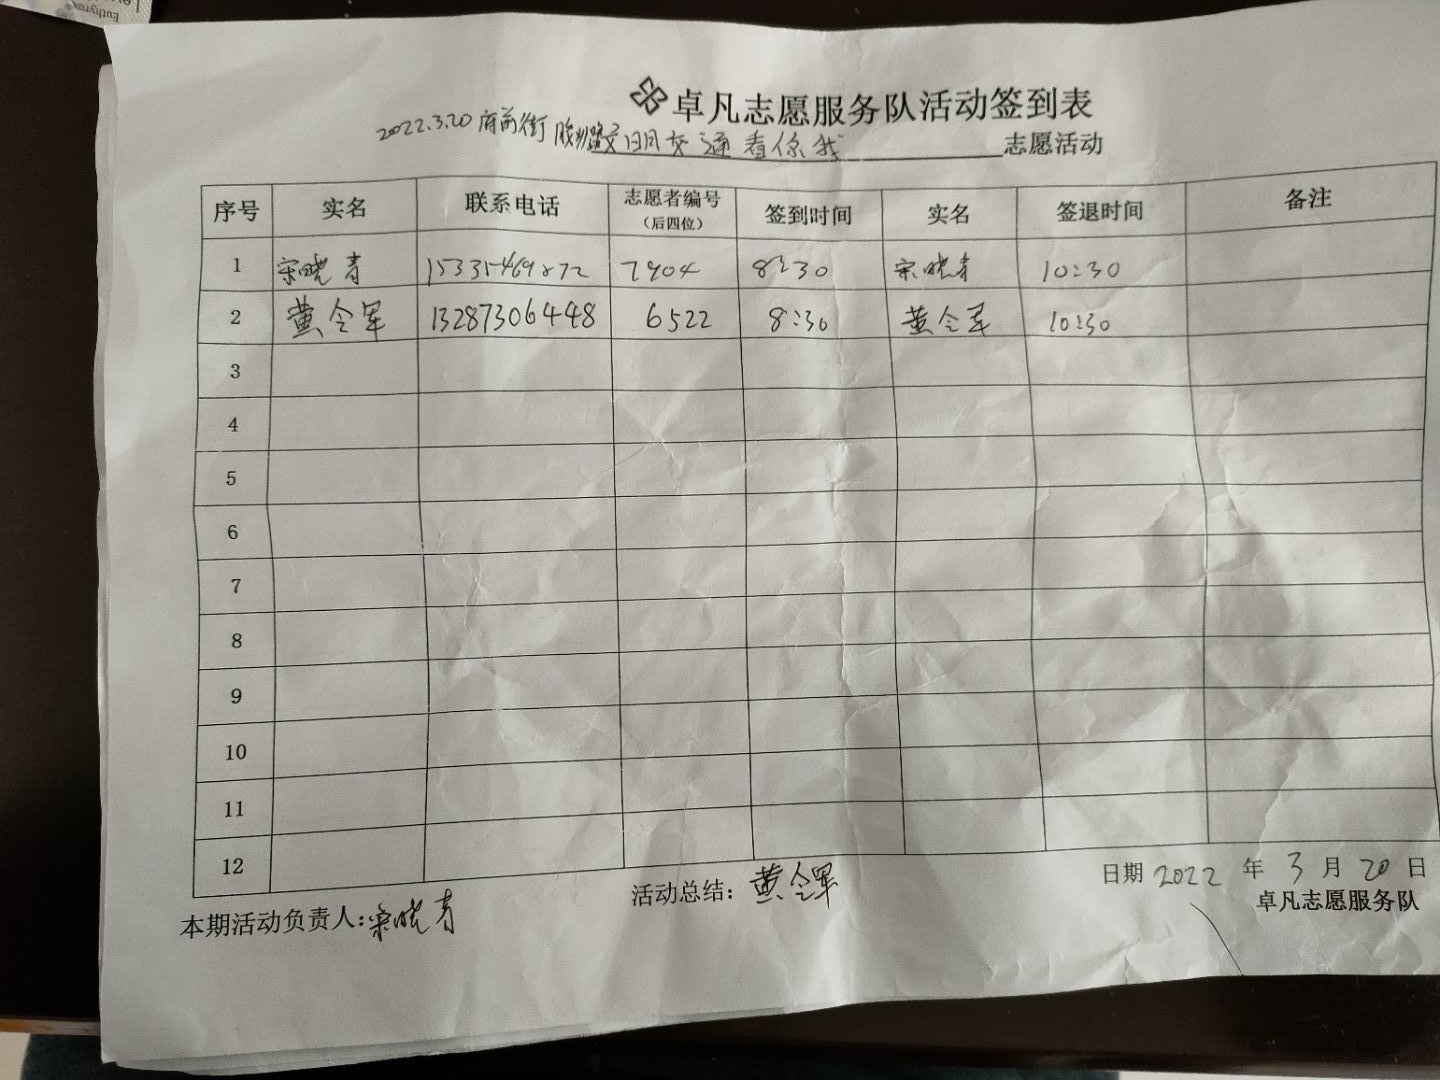 Euthyrox
卓凡志愿服务队活动签到表
2022.3.20 府前街 胶州路文明交通看你我 志愿活动
序号 实名 联系电话 志愿者编号（后四位） 签到时间 实名 签退时间 备注
1 宋晓青 7904 8:30 宋晓青 10:30
2 黄令军 13287306448 6522 8:30 黄令军 10:30
3
4
5
6
7
8
9
10
11
12
本期活动负责人:宋晓青 活动总结：黄令军 日期 2022 年 3 月 20 日
卓凡志愿服务队